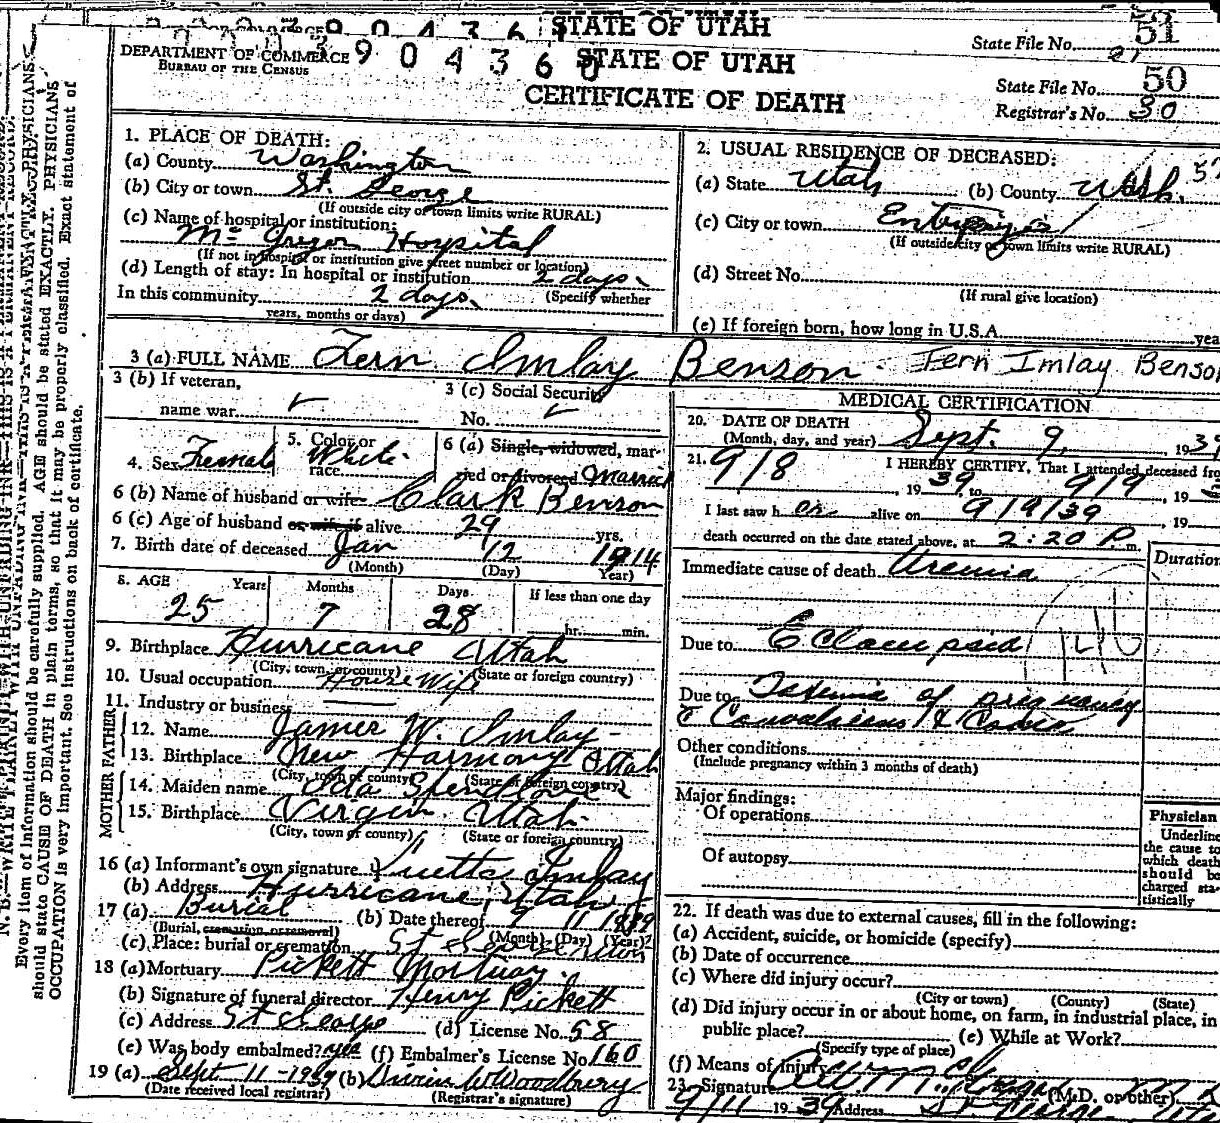 STATE OF UTAH
State File No. 51
DEPARTMENT OF COMMERCE
BUREAU OF THE CENSUS
390436 0
STATE OF UTAH
CERTIFICATE OF DEATH
State File No. 50
Registrar's No. 80
1. PLACE OF DEATH:
(a) County Washington
(b) City or town St. George
(If outside city or town limits write RURAL)
(c) Name of hospital or institution:
Mc Gregor Hospital
(If not in hospital or institution give street number or location)
(d) Length of stay: In hospital or institution 2 days
(Specify whether
In this community 2 days
years, months or days)
2. USUAL RESIDENCE OF DECEASED:
(a) State Utah (b) County Wash.
(c) City or town Enterprise
(If outside city or town limits write RURAL)
(d) Street No.
(If rural give location)
(e) If foreign born, how long in U.S.A. yea
3 (a) FULL NAME Fern Imlay Benson Fern Imlay Benson
3 (b) If veteran,
name war
3 (c) Social Security
No.
4. Sex Female
5. Color or
race White
6 (a) Single, widowed, mar-
ried or divorced Married
6 (b) Name of husband or wife Clark Benson
6 (c) Age of husband or wife if alive 29 yrs.
7. Birth date of deceased Jan 12 1914
(Month) (Day) Year)
8. AGE Years Months Days If less than one day
25 7 28 hr. min.
9. Birthplace Hurricane Utah
(City, town, or county) (State or foreign country)
10. Usual occupation House Wife
11. Industry or business
FATHER
12. Name James W. Imlay
13. Birthplace New Harmony Utah
(City, town or county) (State or foreign country)
MOTHER
14. Maiden name
15. Birthplace Virgin Utah
(City, town or county) (State or foreign country)
16 (a) Informant's own signature Imlay
(b) Address Hurricane, Utah
17 (a) Burial (b) Date thereof 9 11 1939
(Burial, cremation, or removal) (Month) (Day) (Year)
(c) Place: burial or cremation St George
18 (a) Mortuary Pickett Mortuary
(b) Signature of funeral director Henry Pickett
(c) Address St George (d) License No. 58
(e) Was body embalmed? yes (f) Embalmer's License No 160
19 (a) Sept 11-1939 (b) Woodbury
(Date received local registrar) (Registrar's signature)
MEDICAL CERTIFICATION
20. DATE OF DEATH
(Month, day, and year) Sept. 9, 1939
21. I HEREBY CERTIFY, That I attended deceased fro
9/8, 1939 to 9/9, 19
I last saw her alive on 9/9/39, 19
death occurred on the date stated above, at 2:20 P. m.
Duration
Immediate cause of death Uremia
Due to Eclampsia
Due to Toxemia of pregnancy
c Convulsions & Coma
Other conditions
(Include pregnancy within 3 months of death)
Major findings:
Of operations
Of autopsy
Physician
Underline
the cause to
which death
should be
charged sta-
tistically
22. If death was due to external causes, fill in the following:
(a) Accident, suicide, or homicide (specify)
(b) Date of occurrence
(c) Where did injury occur?
(City or town) (County) (State)
(d) Did injury occur in or about home, on farm, in industrial place, in
public place? (e) While at Work?
(Specify type of place)
(f) Means of Injury
23. Signature (M.D. or other)
9/11 1939 Address St George
Every item of information should be carefully supplied. AGE should be stated EXACTLY. PHYSICIANS
should state CAUSE OF DEATH in plain terms, so that it may be properly classified. Exact statement of
OCCUPATION is very important. See instructions on back of certificate.